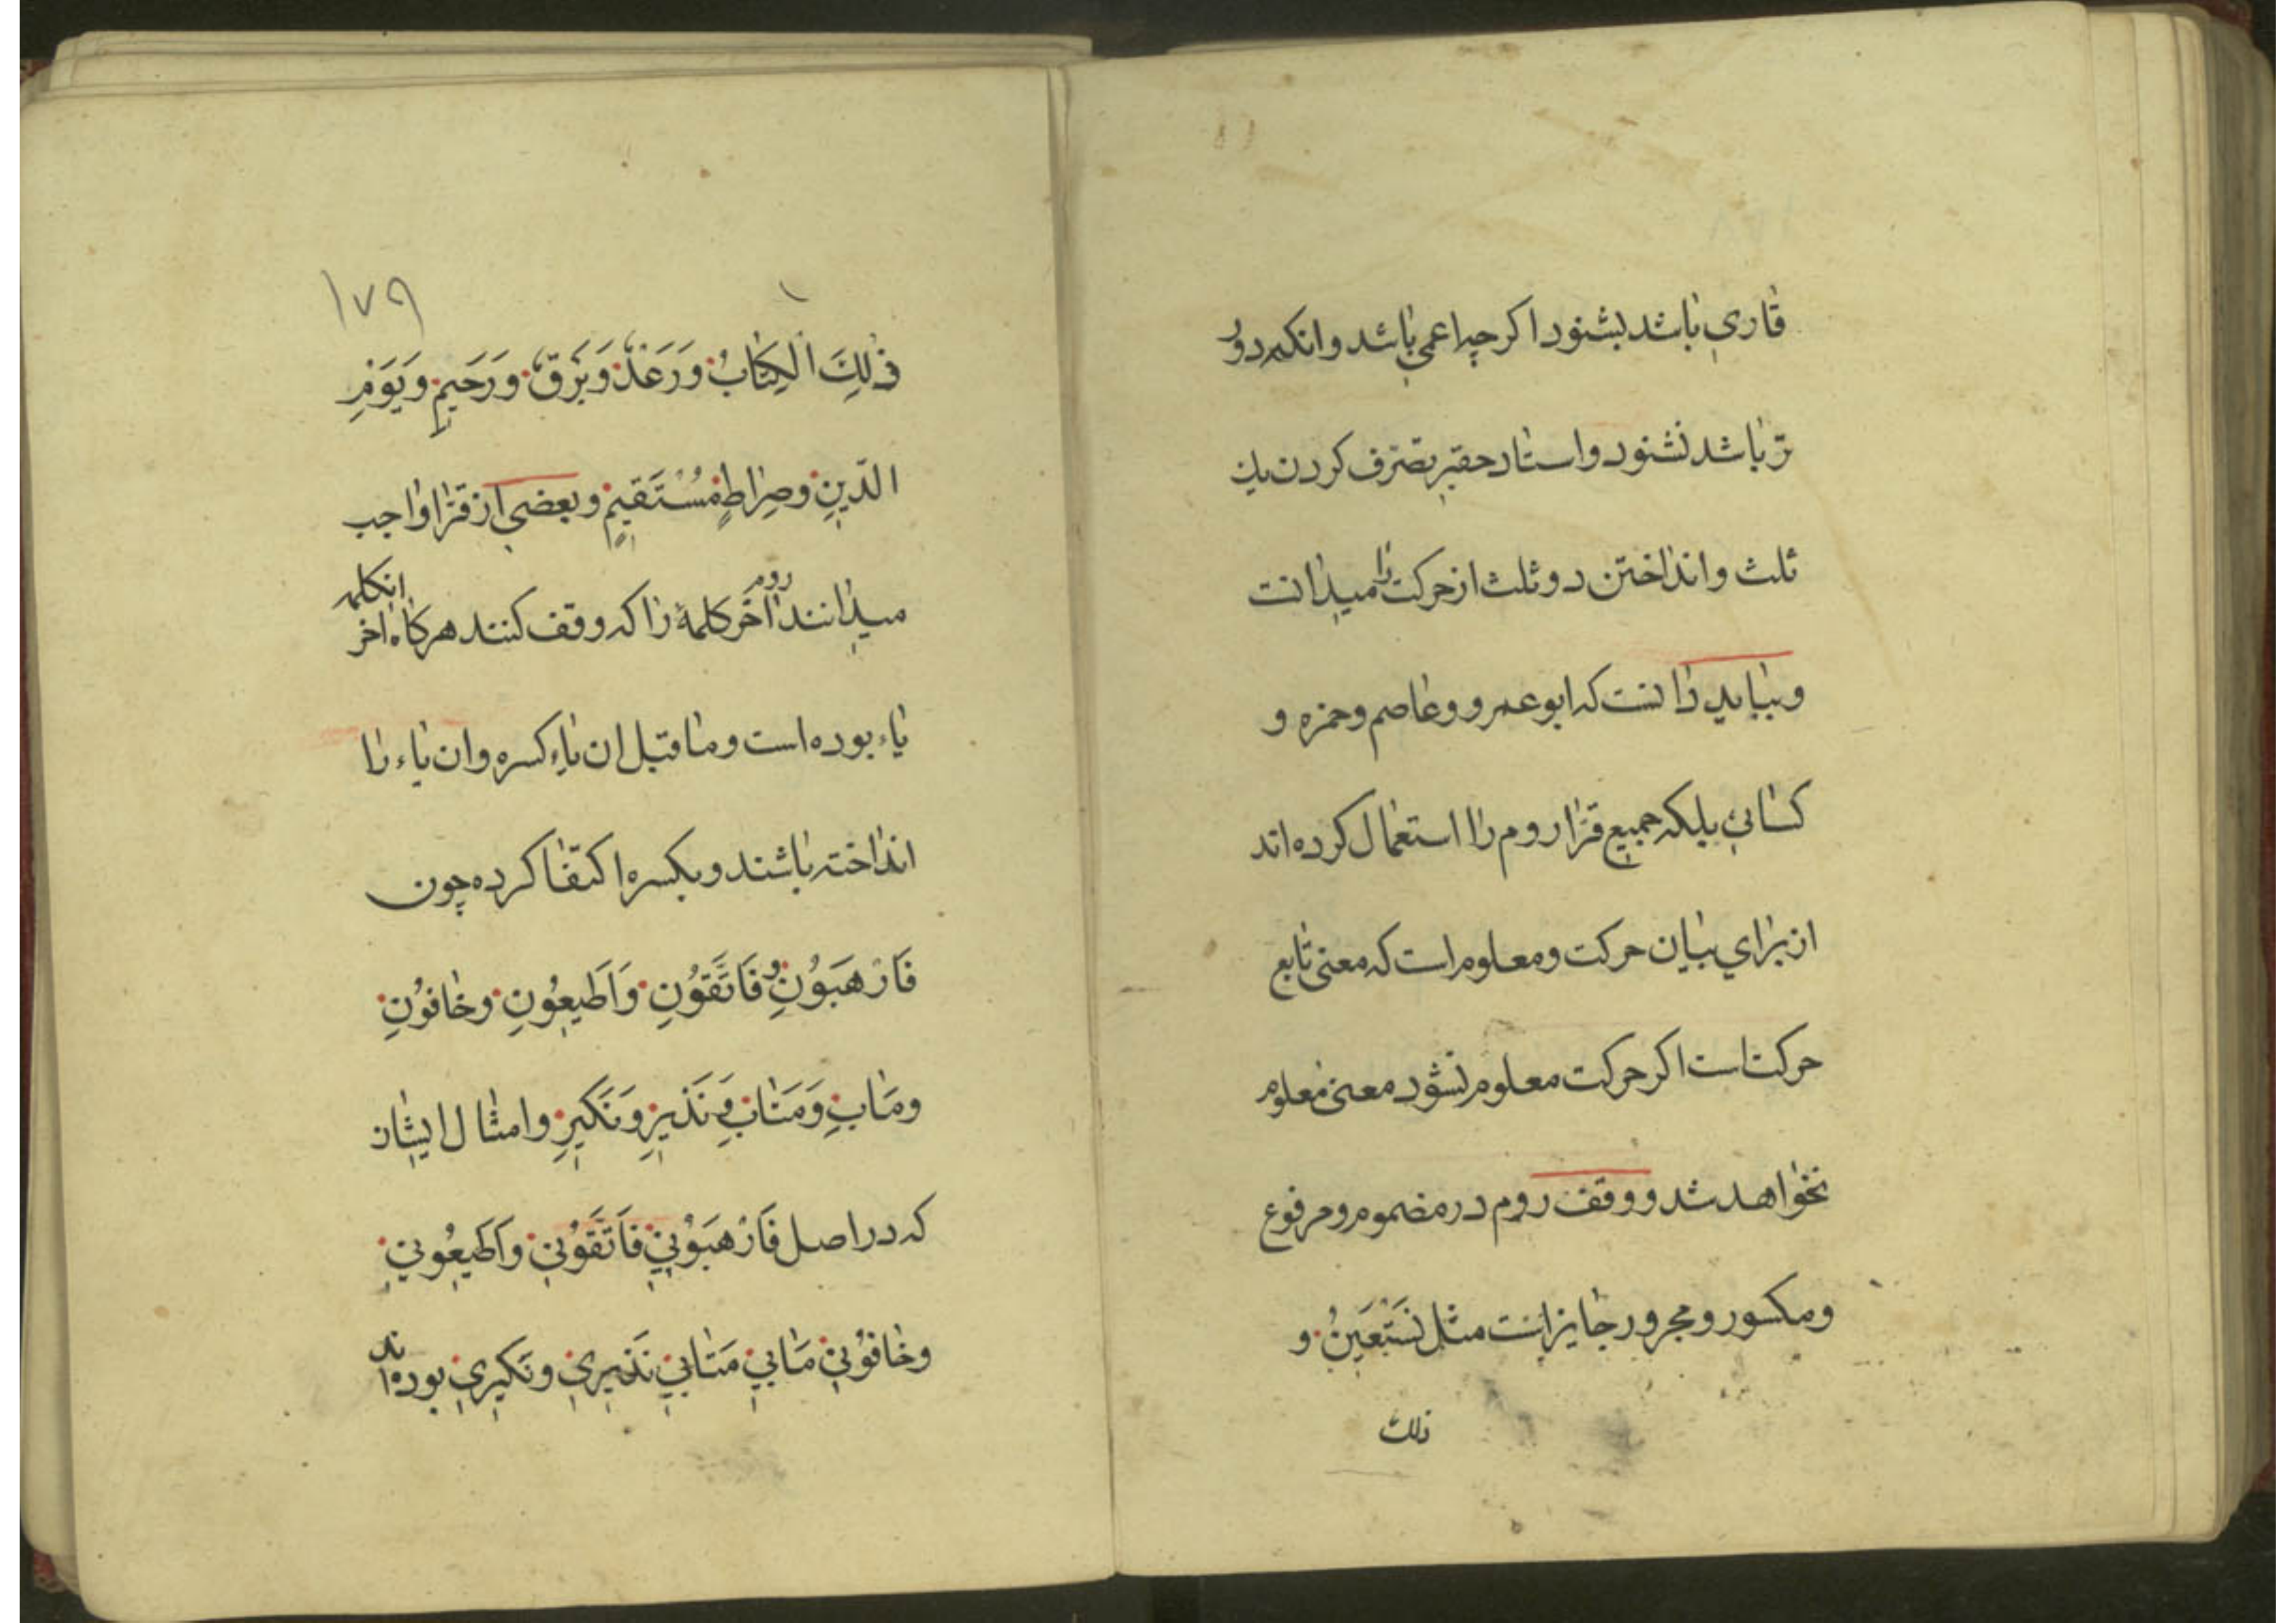 قاری باشد بشنود اکرچه اعمی باشد و انکه دور
تر باشد نشنود و استاد حقیر بصرف کردن یک
ثلث و انداختن دو ثلث از حرکت را میدانست
و بباید دانست که ابو عمرو و عاصم و حمزه و
کسائی بلکه جمیع قرّا روم را استعمال کرده اند
از برای بیان حرکت و معلوم است که معنی تابع
حرکتست اکر حرکت معلوم نشود معنی معلوم
نخواهد شد و وقف روم در مضموم و مرفوع
و مکسور و مجرور جایز است مثل نَسْتَعِینُ و
ذلک
١٧٩
ذٰلِكَ الْكِتَابُ وَرَعْدٌ وَبَرْقٌ وَرَحِيمٍ وَيَوْمِ
الدِّينِ وَصِرَاطٍ مُسْتَقِيمٍ و بعضی از قرّا واجب
میدانند روم اخر کلمهٔ را که وقف کنند هرکاه اخر انکلمه
یاء بوده است و ما قبل ان یاء کسره و ان یاء را
انداخته باشند و بکسره اکتفا کرده چون
فَارْهَبُونِ و فَاتَّقُونِ وَاَطِيعُونِ وخَافُونِ
ومَاٰبِ وَمَتَابِ و نَذِيرِ ونَكِيرِ و امثال ایشان
که در اصل فَارْهَبُونِي فَاتَّقُونِي وَاَطِيعُونِي
وخَافُونِي مَاٰبِي مَتَابِي نَذِيرِي ونَكِيرِي بوده اند